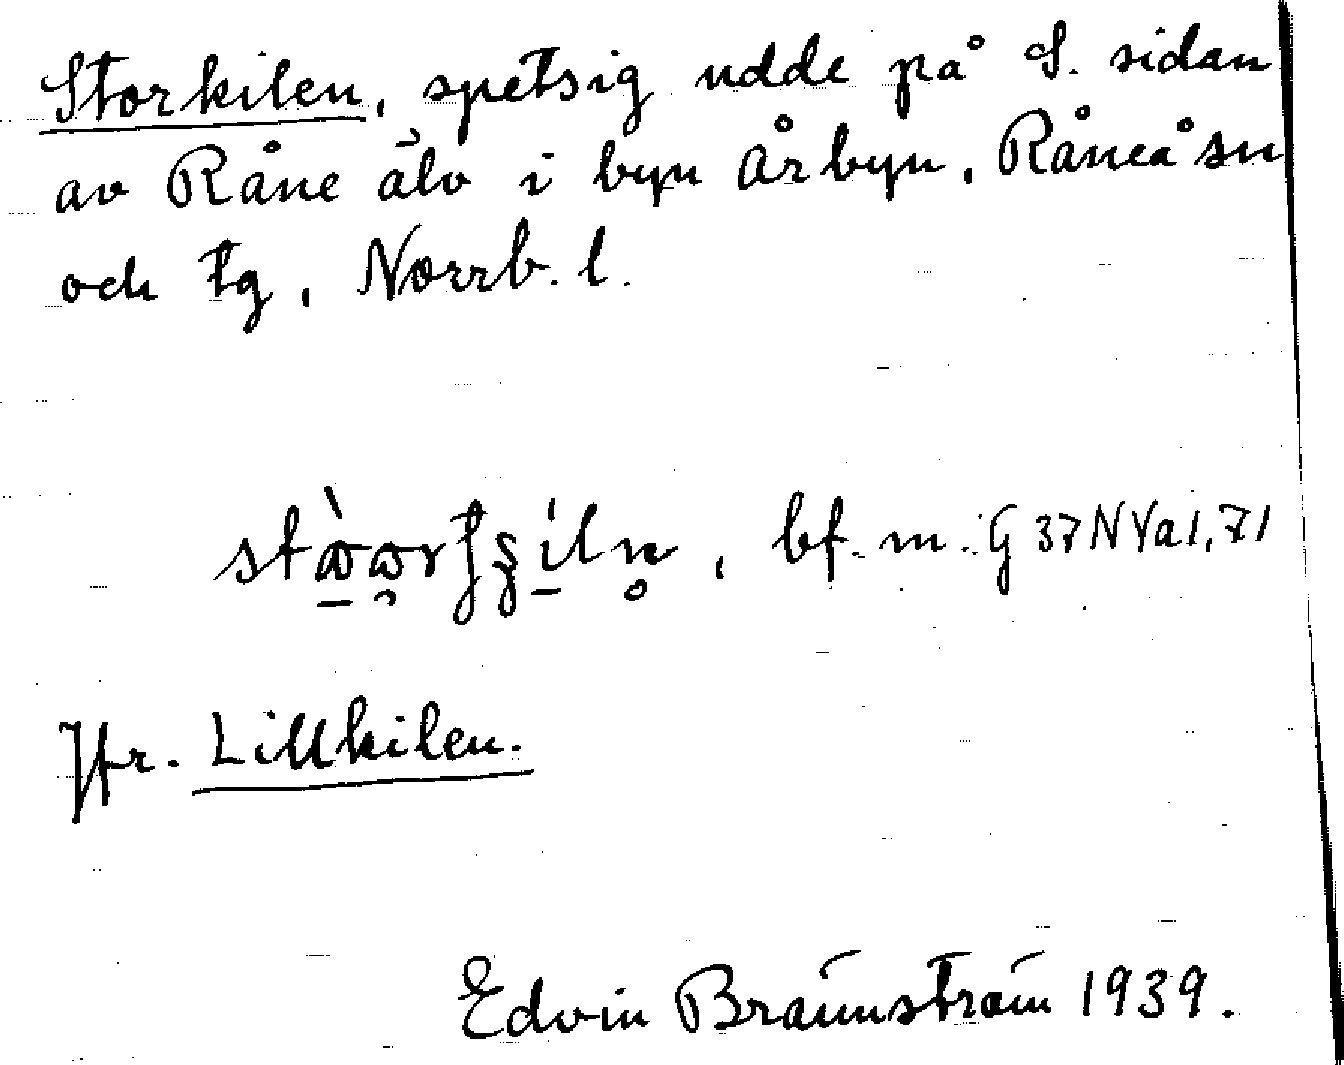 Storkilen, spetsig udde på S. sidan
av Råne älv i byn Årbyn, Råneå sn
och tg, Norrb. l.
bf. m. G 37 N Va 1, 71
Jfr. Lillkilen.
Edvin Brännström 1939.